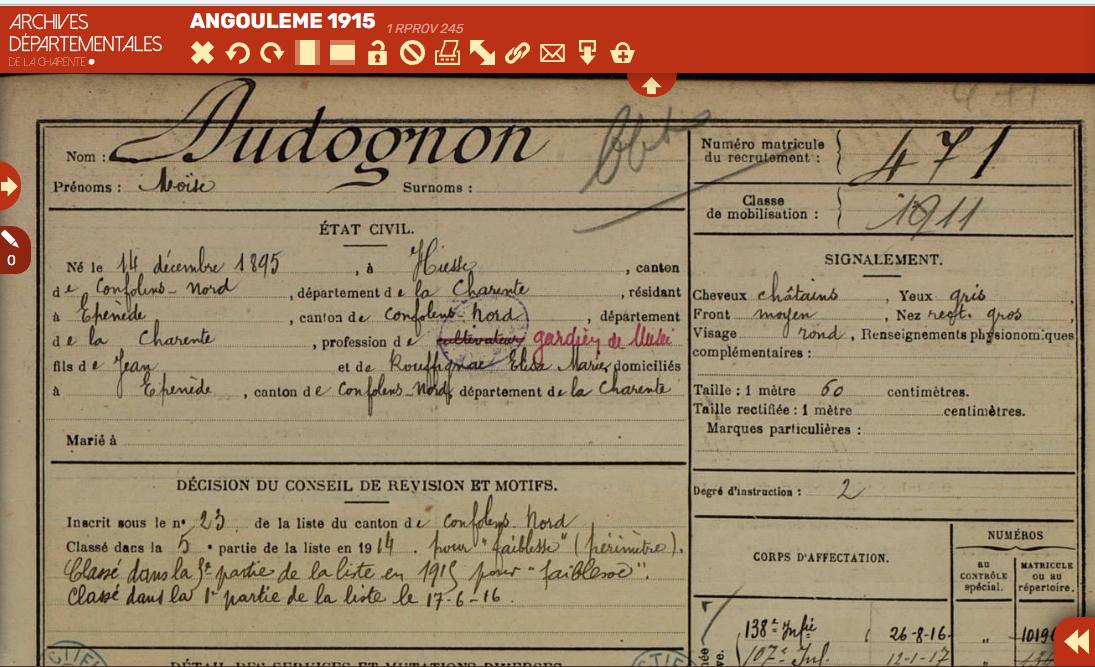 ARCHIVES
DÉPARTEMENTALES
DE LA CHARENTE
ANGOULEME 1915 1 RPROV 245
0
Nom : Audognon
Prénoms : Moïse Surnoms :
Numéro matricule
du recrutement : 471
Classe
de mobilisation : 1911
ÉTAT CIVIL.
Né le 14 décembre 1895, à Hiesse, canton
de Confolens-Nord, département de la Charente, résidant
à Epenède, canton de Confolens-Nord, département
de la Charente, profession de cultivateur gardien de
fils de Jean et de Rouffignac Elisa Marie, domiciliés
à Epenède, canton de Confolens-Nord, département de la Charente
Marié à
SIGNALEMENT.
Cheveux châtains, Yeux gris,
Front moyen, Nez rect. gros
Visage rond, Renseignements physionomiques
complémentaires :
Taille : 1 mètre 60 centimètres.
Taille rectifiée : 1 mètre centimètres.
Marques particulières :
Degré d'instruction : 2
DÉCISION DU CONSEIL DE REVISION ET MOTIFS.
Inscrit sous le n° 23 de la liste du canton de Confolens-Nord
Classé dans la 5e partie de la liste en 1914. pour "faiblesse" (périmètre).
Classé dans la 5e partie de la liste en 1915 pour "faiblesse".
Classé dans la 1e partie de la liste le 17-6-16.
CORPS D'AFFECTATION.
NUMÉROS
AU
CONTRÔLE
spécial.
MATRICULE
ou au
répertoire.
138e Infie 26-8-16 "
107e Inf. 12-1-17 "
DÉTAIL DES SERVICES ET MUTATIONS DIVERSES